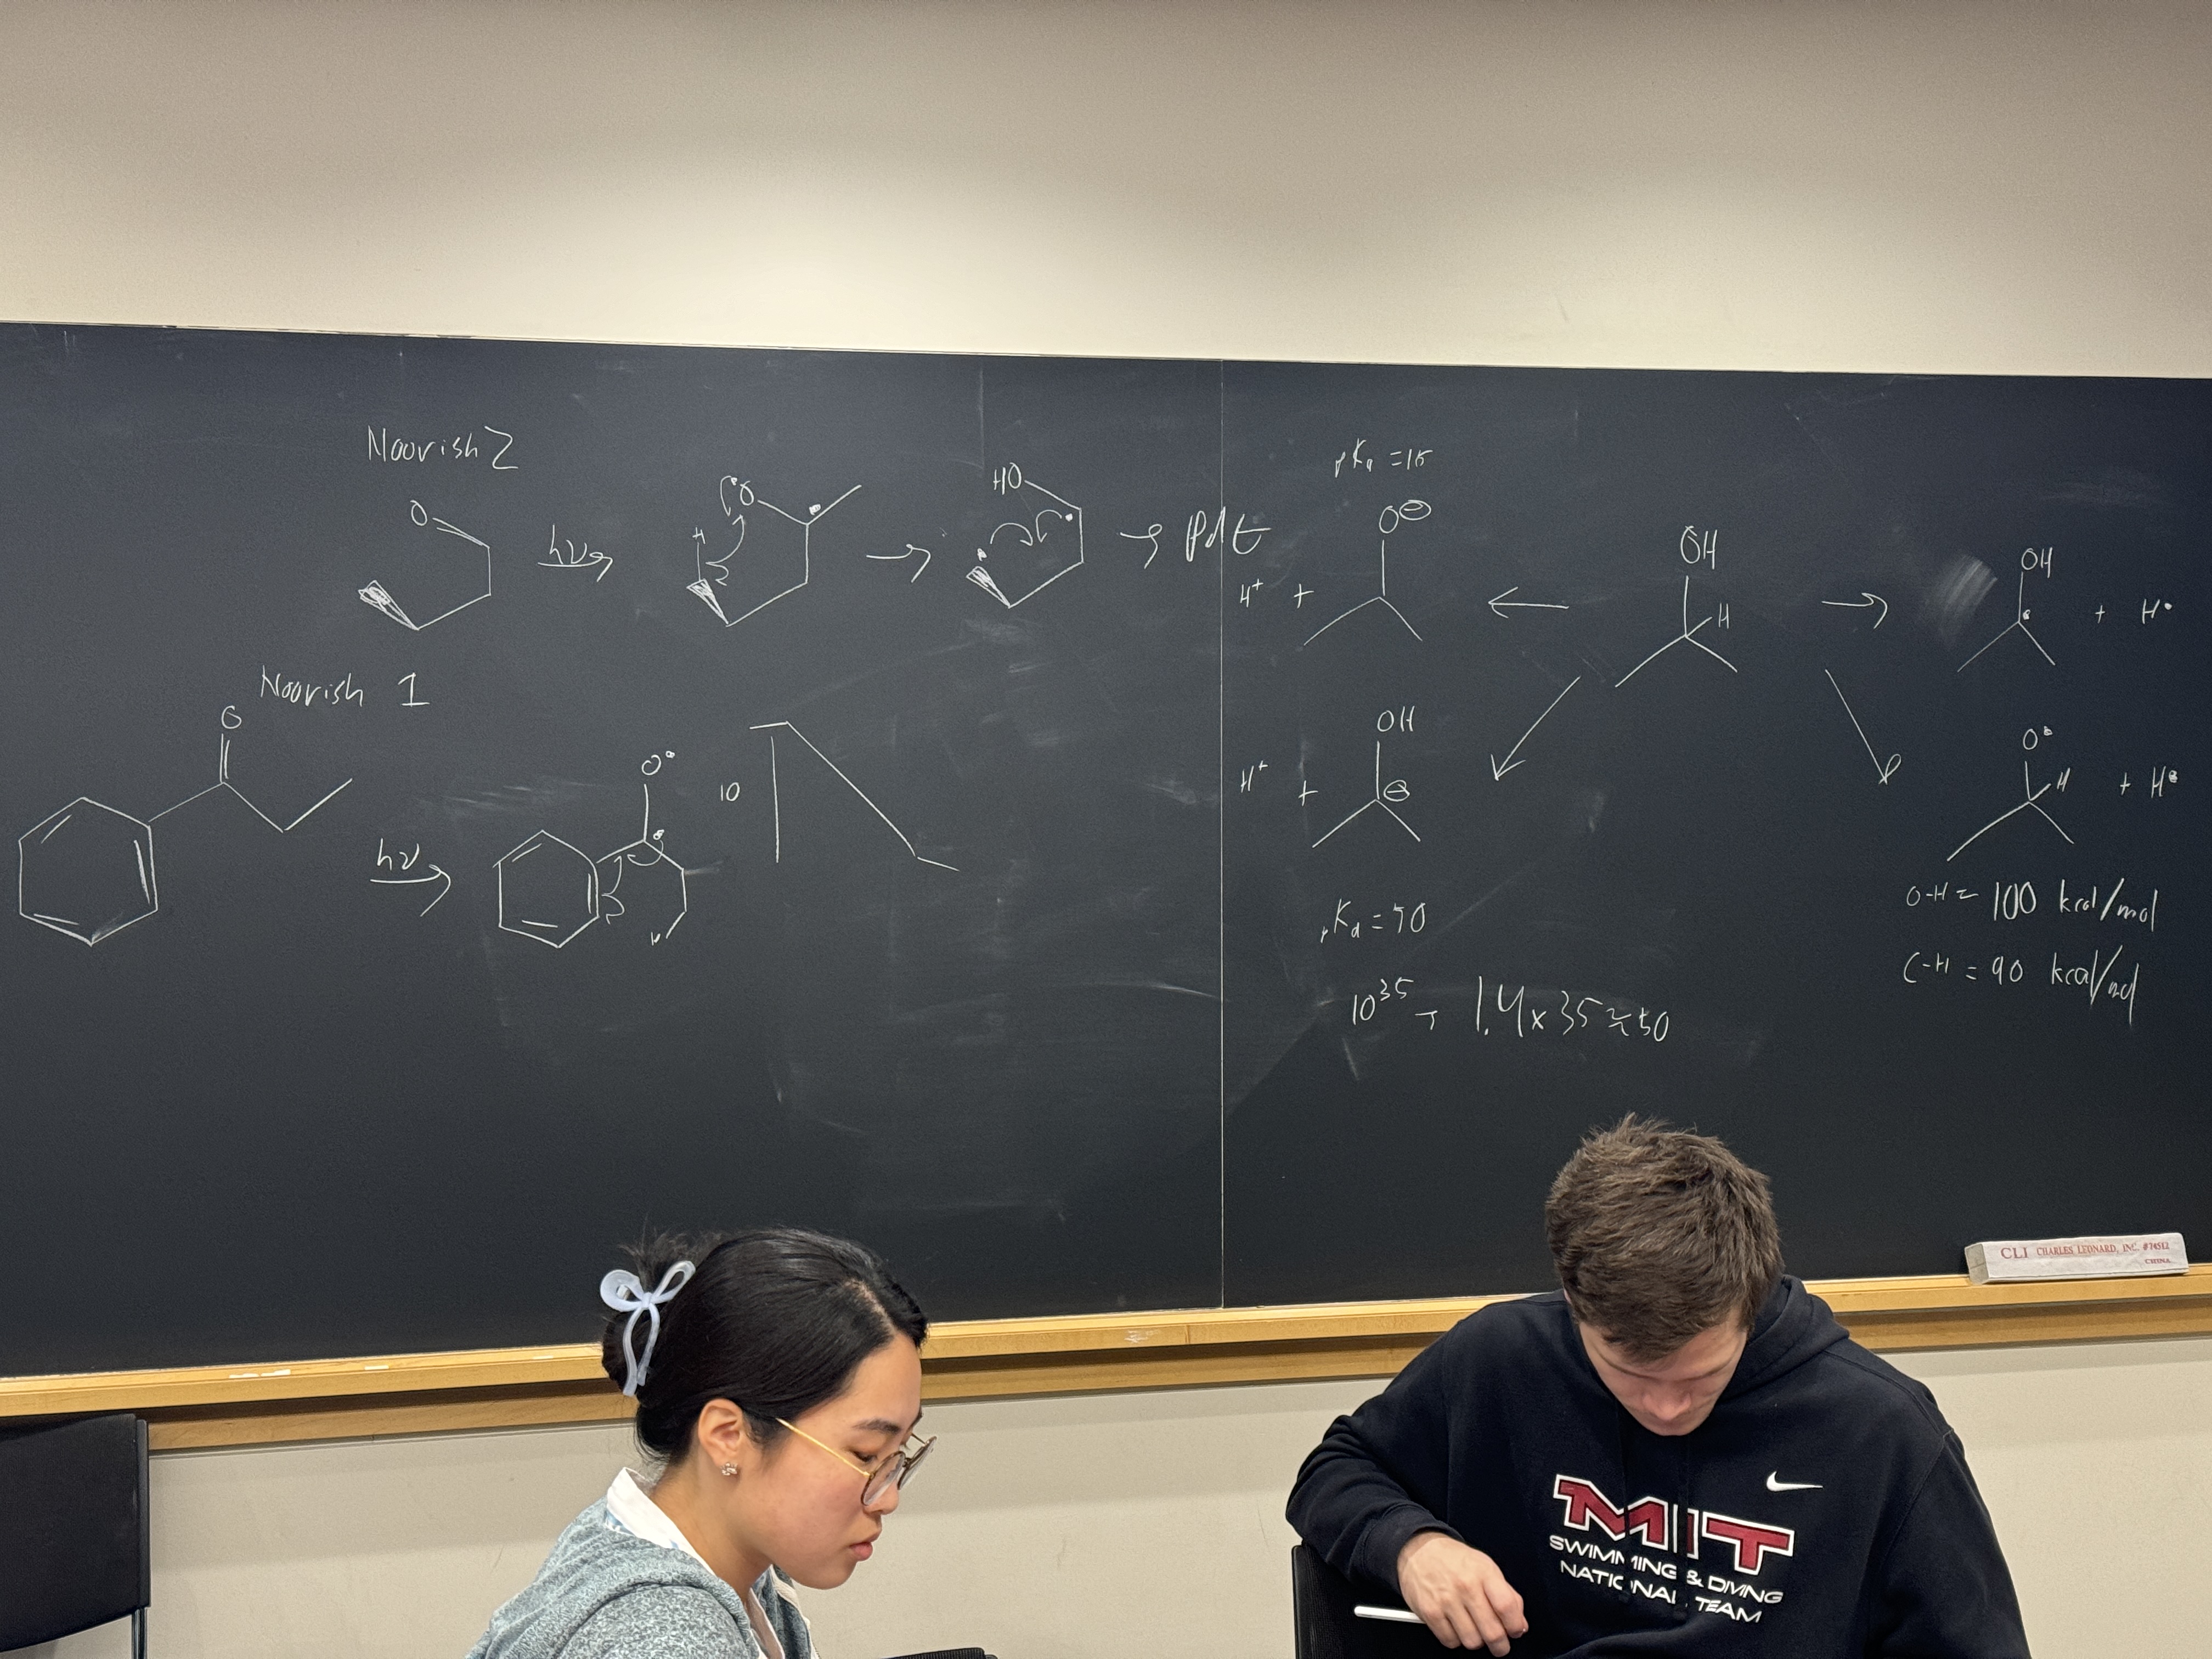 Noorish 2
O
hν
O
H
HO
Pdt
Noorish 1
O
hν
O•
10
pKa = 15
O⊖
H+ +
OH
H
OH
+ H•
OH
H+ +
⊖
O•
H
+ H•
pKa = 50
O-H = 100 kcal/mol
C-H = 90 kcal/mol
10^35 → 1.4 x 35 ≈ 50
CLI CHARLES LEONARD, INC. #74512
CHINA
MIT
SWIMMING & DIVING
NATIONAL TEAM